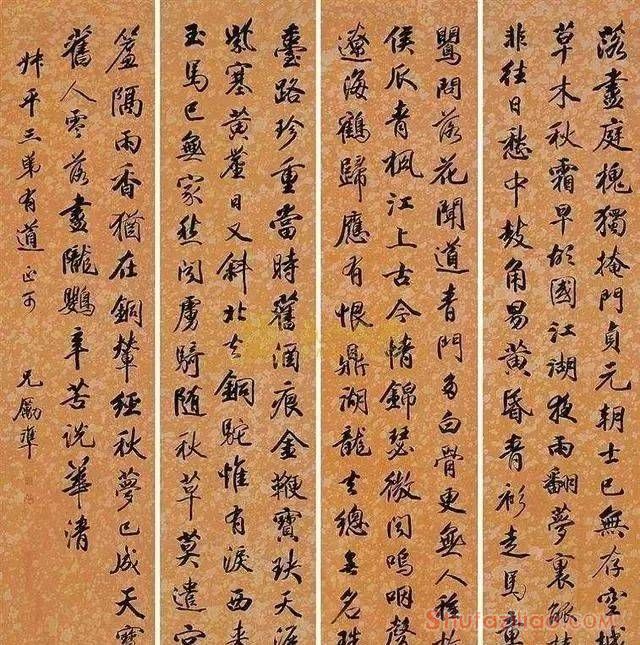 落盡庭槐獨掩門貞元朝士已無存空城
草木秋霜早故國江湖夜雨翻夢裏
非往日愁中鼓角易黃昏青衫走馬重
鸎問落花聞道青門多白骨更無人種故
侯瓜青楓江上古今情錦瑟微聞嗚咽聲
遼海鶴歸應有恨鼎湖龍去總無名珠
臺路珍重當時舊酒痕金鞭寶玦天涯
紫塞黃董日又斜北去銅駝惟有淚西來
玉馬已無家愁聞虜騎隨秋草莫遣宮
簾隅雨香猶在銅輦經秋夢已成天寶
舊人零落盡隴鸚辛苦說華清
叔平三弟有道正可
兄勵準
Shufaziliao.com